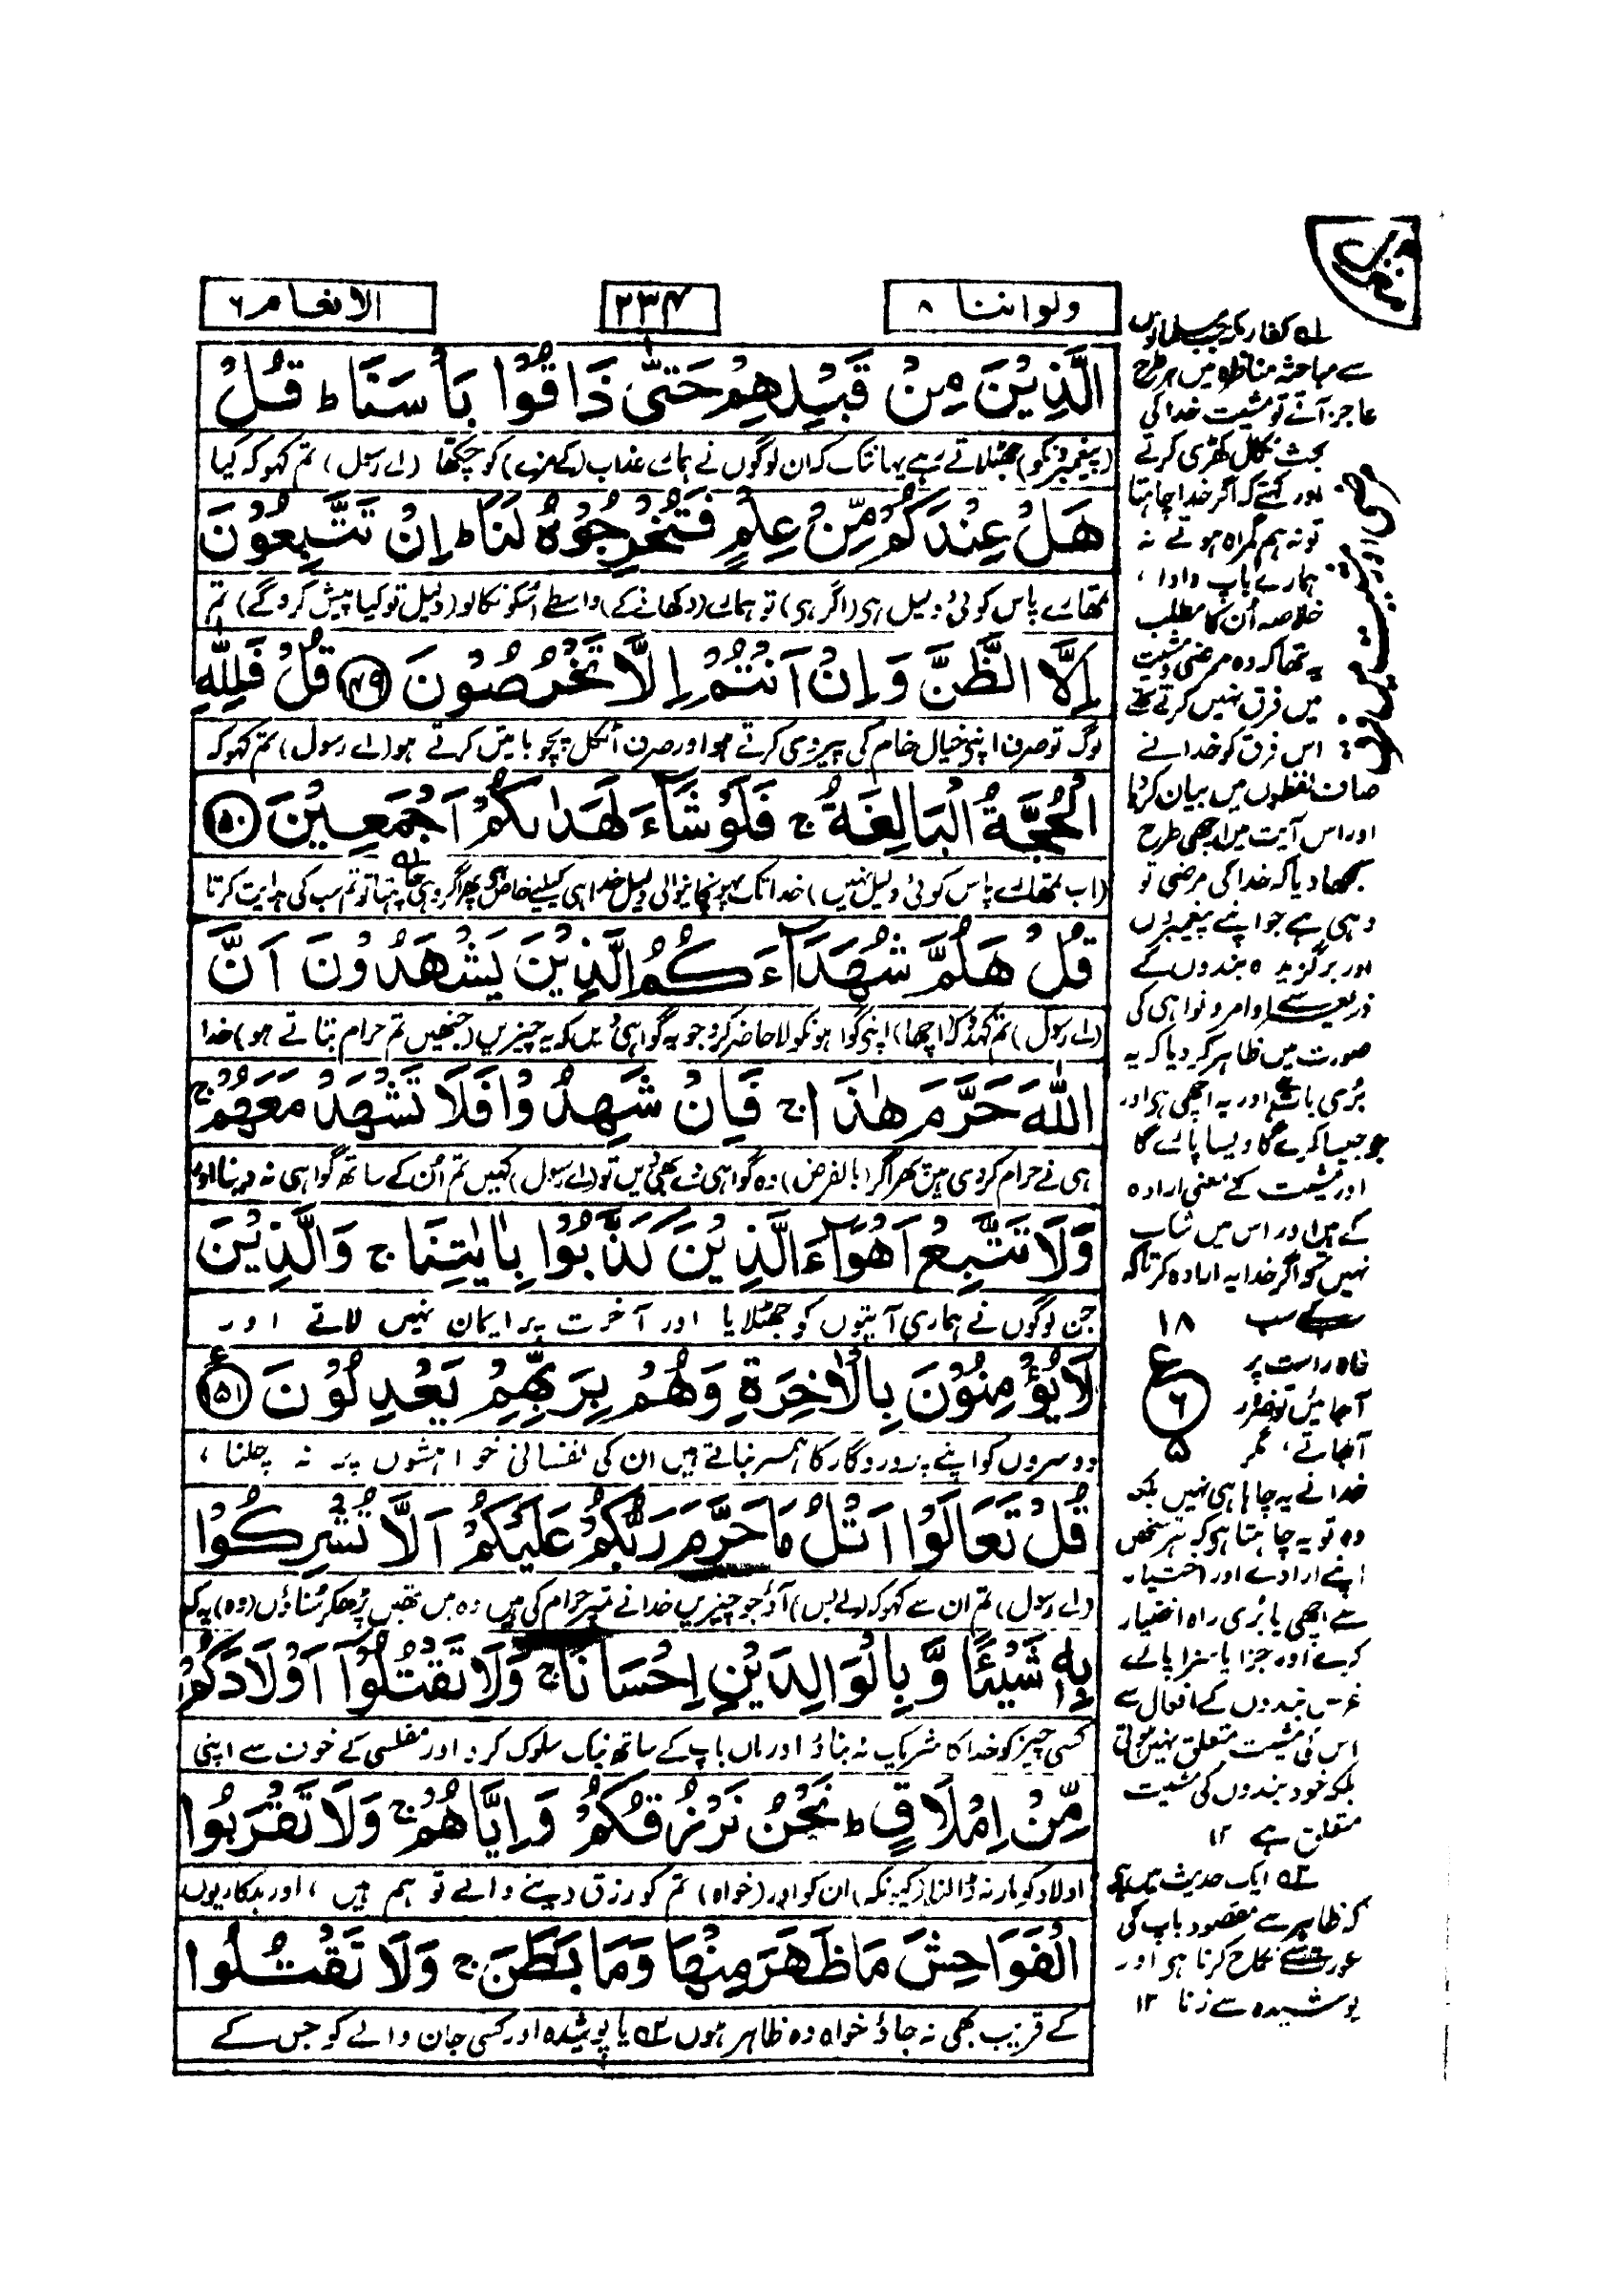 ولواننا ۸
۲۳۴
الانعام ۶
الَّذِیْنَ مِنْ قَبْلِهِمْ حَتّٰی ذَاقُوْا بَاْسَنَا ط قُلْ
(پیغمبرونکو) جھٹلاتے رہے یہانتک کہ ان لوگوں نے ہمارے عذاب (کے مزے) کو چکھا (اے رسول) تم کہو کہ کیا
هَلْ عِنْدَكُمْ مِّنْ عِلْمٍ فَتُخْرِجُوْهُ لَنَا ط اِنْ تَتَّبِعُوْنَ
تمھارے پاس کوئی دلیل ہی (اگر ہی) تو ہمارے (دکھانے کے) واسطے اسکو نکالو (دلیل تو کیا پیش کرو گے) تم
اِلَّا الظَّنَّ وَ اِنْ اَنْتُمْ اِلَّا تَخْرُصُوْنَ ۱۴۹ قُلْ فَلِلّٰهِ
لوگ تو صرف اپنی خیال خام کی پیروی کرتے ہو اور صرف اٹکل پچو باتیں کرتے ہو (اے رسول) تم کہو کہ
الْحُجَّةُ الْبَالِغَةُ ج فَلَوْ شَآءَ لَهَدٰىكُمْ اَجْمَعِیْنَ ۱۵۰
(اب تمھارے پاس کوئی دلیل نہیں) خدا تک پہونچانیوالی دلیل خدا ہی کیلیے خاص ہی پھر اگر وہی چاہتا تو تم سب کی ہدایت کرتا
قُلْ هَلُمَّ شُهَدَآءَكُمُ الَّذِیْنَ یَشْهَدُوْنَ اَنَّ
(اے رسول) تم کہدو کہ (اچھا) اپنی گواہونکو لا حاضر کرو جو یہ گواہی دیں کہ یہ چیزیں (جنھیں تم حرام بتاتے ہو) خدا
اللّٰهَ حَرَّمَ هٰذَا ج فَاِنْ شَهِدُوْا فَلَا تَشْهَدْ مَعَهُمْ ج
ہی نے حرام کردی ہیں پھر اگر (بالفرض) وہ گواہی دے بھی دیں تو (اے رسول) کہیں تم اُن کے ساتھ گواہی نہ دینا اور
وَلَا تَتَّبِعْ اَهْوَآءَ الَّذِیْنَ كَذَّبُوْا بِاٰیٰتِنَا ج وَالَّذِیْنَ
جن لوگوں نے ہماری آیتوں کو جھٹلایا اور آخرت پر ایمان نہیں لاتے اور
لَا یُؤْمِنُوْنَ بِالْاٰخِرَةِ وَهُمْ بِرَبِّهِمْ یَعْدِلُوْنَ ۱۵۱ ع
دوسروں کو اپنے پروردگار کا ہمسر بناتے ہیں ان کی نفسانی خواہشوں پر نہ چلنا،
قُلْ تَعَالَوْا اَتْلُ مَا حَرَّمَ رَبُّكُمْ عَلَیْكُمْ اَلَّا تُشْرِكُوْا
(اے رسول) تم ان سے کہو کہ (لے بس) آؤ جو چیزیں خدا نے تمپر حرام کی ہیں وہ میں تمھیں پڑھکر سُناؤں (وہ) یہ کہ
بِهٖ شَیْئًا وَّ بِالْوَالِدَیْنِ اِحْسَانًا ج وَلَا تَقْتُلُوْٓا اَوْلَادَكُمْ
کسی چیز کو خدا کا شریک نہ بناؤ اور ماں باپ کے ساتھ نیک سلوک کرو اور مفلسی کے خون سے اپنی
مِّنْ اِمْلَاقٍ ط نَحْنُ نَرْزُقُكُمْ وَ اِیَّاهُمْ ج وَلَا تَقْرَبُوا
اولاد کو مار نہ ڈالنا (کیونکہ) ان کو اور (خواہ) تم کو رزق دینے والے تو ہم ہیں، اور بدکاریوں
الْفَوَاحِشَ مَا ظَهَرَ مِنْهَا وَمَا بَطَنَ ج وَلَا تَقْتُلُوا
کے قریب بھی نہ جاؤ خواہ وہ ظاہر ہوں ۲ یا پوشیدہ اور کسی جان والے کو جس کے
۱ کفار مکہ جب مسلمانوں
سے مباحثہ مناظرہ میں ہر طرح
عاجز آئے تو مشیت خدا کی
بحث نکال کھڑی کرتے
اور کہتے کہ اگر خدا چاہتا
تو نہ ہم گمراہ ہوتے نہ
ہمارے باپ دادا،
خلاصہ اُن کا مطلب
یہ تھا کہ وہ مرضی و مشیت
میں فرق نہیں کرتے تھے
اس فرق کو خدا نے
صاف لفظوں میں بیان کردیا
اور اس آیت میں اچھی طرح
سمجھا دیا کہ خدا کی مرضی تو
وہی ہے جو اپنے پیغمبروں
اور برگزیدہ بندوں کے
ذریعہ سے اوامر و نواہی کی
صورت میں ظاہر کردیا کہ یہ
بُری بات ہے اور یہ اچھی ہو اور
جو جیسا کرے گا ویسا پائے گا
اور مشیت کے معنی ارادہ
کے ہیں اور اس میں شک
نہیں کہ اگر خدا یہ ارادہ کرتا کہ
سب کے سب
راہ راست پر
آجائیں تو ضرور
آجاتے، مگر
خدا نے یہ چاہا ہی نہیں بلکہ
وہ تو یہ چاہتا ہو کہ ہر شخص
اپنے ارادے اور اختیار
سے اچھی یا بُری راہ اختیار
کرے اور جزا یا سزا پائے
غرض بندوں کے افعال سے
اس کی مشیت متعلق نہیں ہوتی
بلکہ خود بندوں کی مشیت
متعلق ہے ۱۲
۲ ایک حدیث میں ہے
کہ ظاہر سے مقصود باپ کی
عورت سے نکاح کرنا ہو اور
پوشیدہ سے زنا ۱۲
۱۸
ع
۶
۵